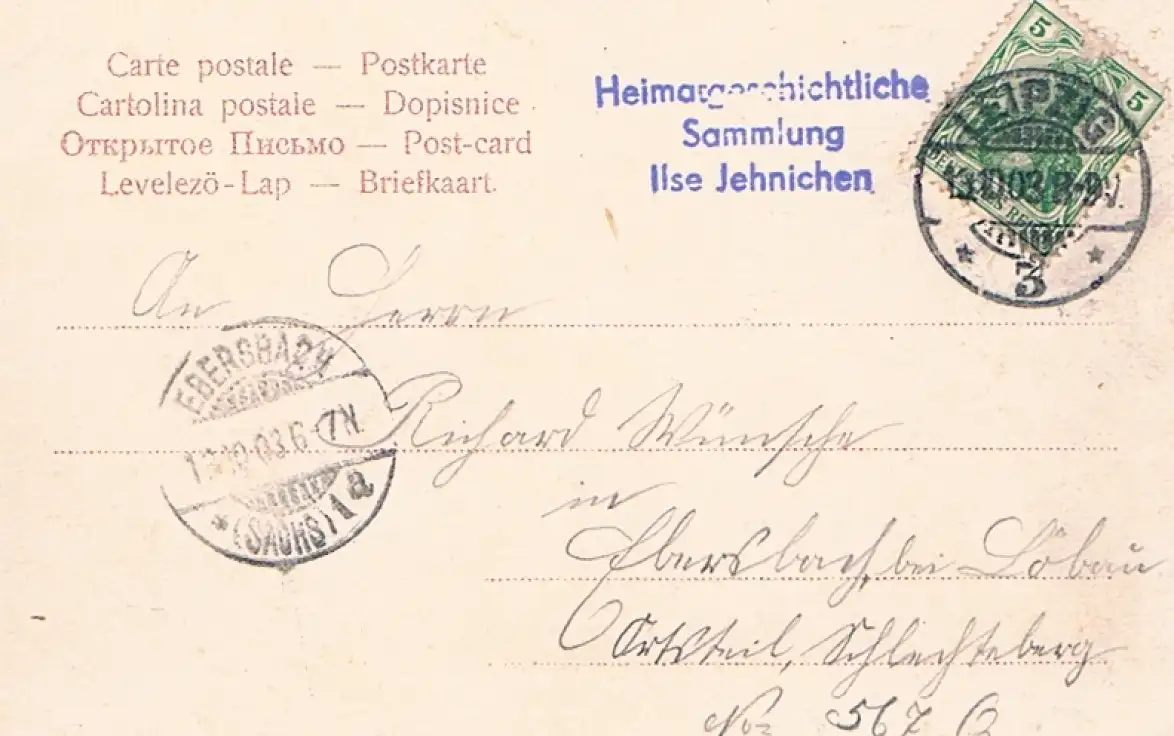 Carte postale — Postkarte
Cartolina postale — Dopisnice
Открытое Письмо — Post-card
Levelező-Lap — Briefkaart
Heimatgeschichtliche
Sammlung
Ilse Jehnichen
5
5
LEIPZIG
13.10.03.8-9V.
3
An Herrn
EBERSBACH
13.10.03.6-7N.
(SACHS) 1 a
Richard Wünsche
in
Ebersbach, bei Löbau
Ortsteil, Schlechteberg
No 567